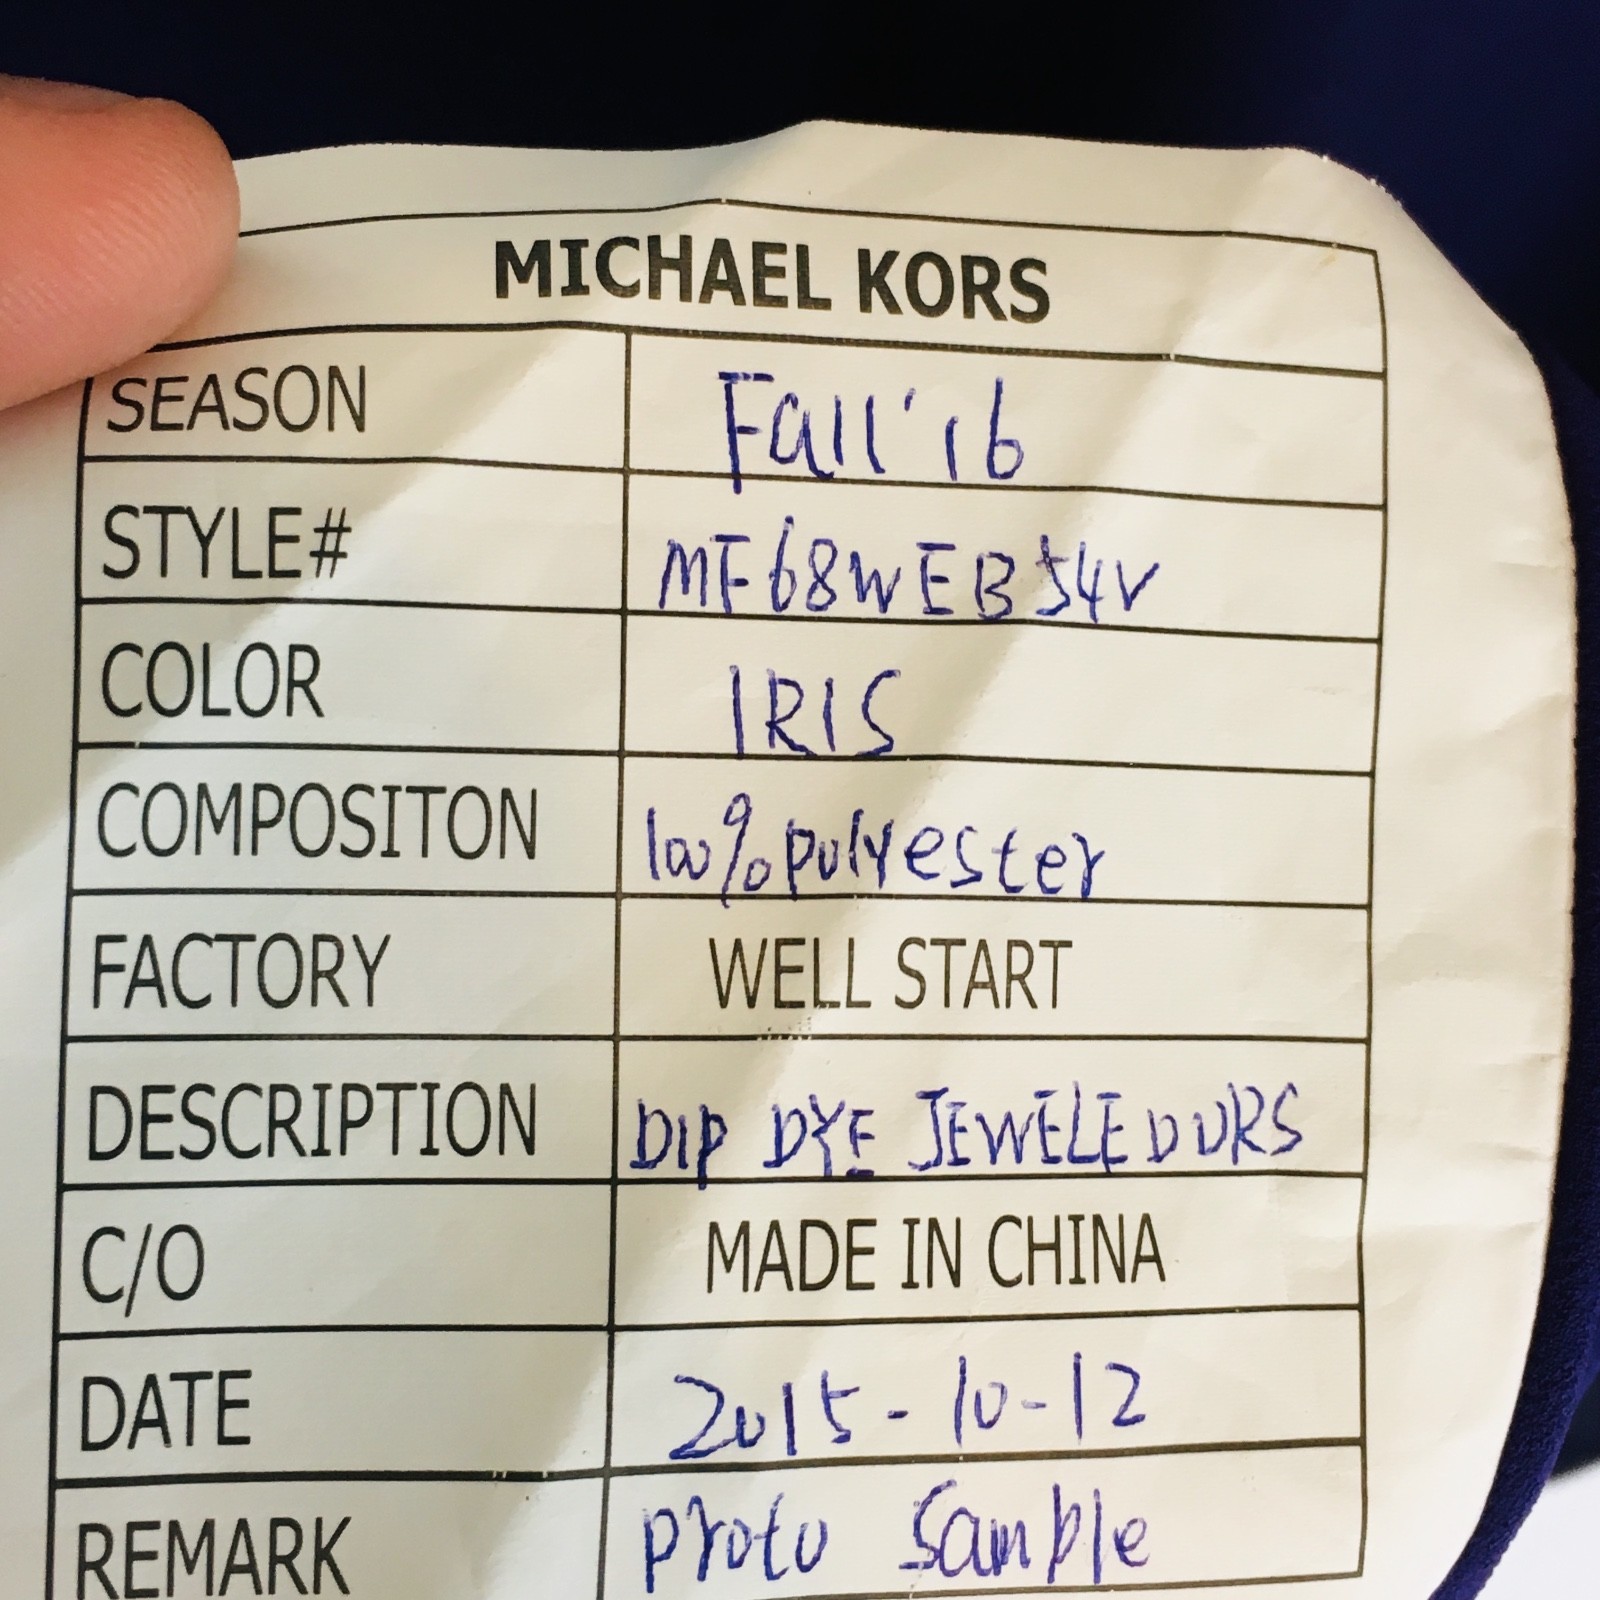 MICHAEL KORS
SEASON Fall '16
STYLE# MF68WEB54V
COLOR IRIS
COMPOSITON 100% polyester
FACTORY WELL START
DESCRIPTION DIP DYE JEWELED DRS
C/O MADE IN CHINA
DATE 2015-10-12
REMARK proto sample